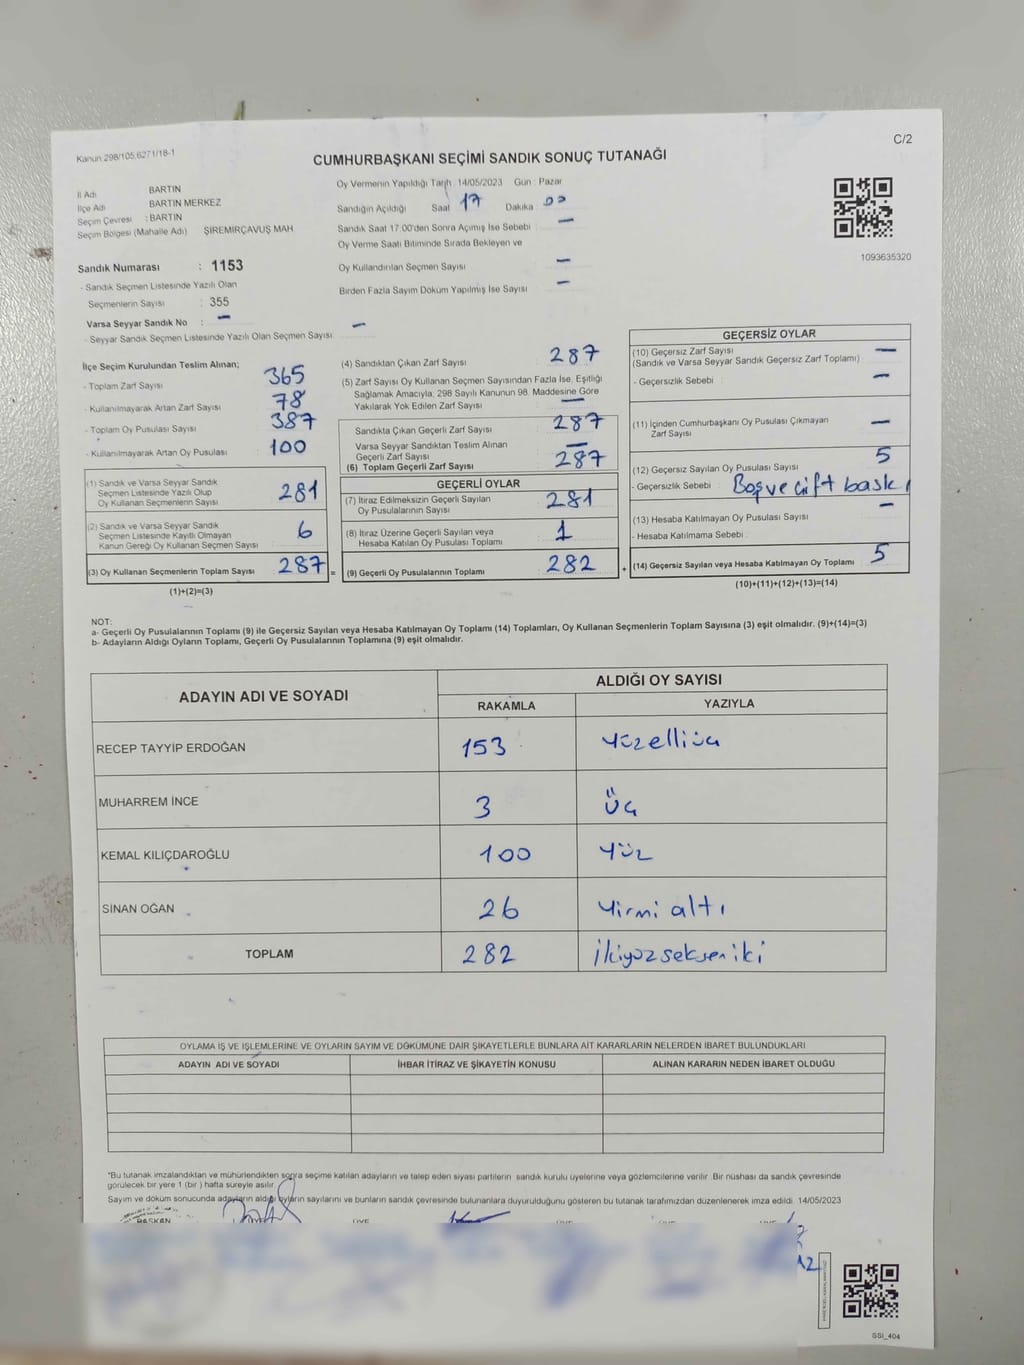 Kanun 298/105,6271/18-1
C/2
CUMHURBAŞKANI SEÇİMİ SANDIK SONUÇ TUTANAĞI
İl Adı BARTIN
İlçe Adı BARTIN MERKEZ
Seçim Çevresi : BARTIN
Seçim Bölgesi (Mahalle Adı) ŞİREMİRÇAVUŞ MAH
Sandık Numarası : 1153
- Sandık Seçmen Listesinde Yazılı Olan
Seçmenlerin Sayısı : 355
Varsa Seyyar Sandık No : –
- Seyyar Sandık Seçmen Listesinde Yazılı Olan Seçmen Sayısı: –
Oy Vermenin Yapıldığı Tarih 14/05/2023 Gün : Pazar
Sandığın Açıldığı Saat 17 Dakika 00
Sandık Saat 17:00'den Sonra Açımış İse Sebebi –
Oy Verme Saati Bitiminde Sırada Bekleyen ve
Oy Kullandırılan Seçmen Sayısı –
Birden Fazla Sayım Döküm Yapılmış İse Sayısı –
1093635320
İlçe Seçim Kurulundan Teslim Alınan;
- Toplam Zarf Sayısı 365
- Kullanılmayarak Artan Zarf Sayısı 78
- Toplam Oy Pusulası Sayısı 387
- Kullanılmayarak Artan Oy Pusulası 100
(1) Sandık ve Varsa Seyyar Sandık
Seçmen Listesinde Yazılı Olup
Oy Kullanan Seçmenlerin Sayısı 281
(2) Sandık ve Varsa Seyyar Sandık
Seçmen Listesinde Kayıtlı Olmayan
Kanun Gereği Oy Kullanan Seçmen Sayısı 6
(3) Oy Kullanan Seçmenlerin Toplam Sayısı 287 =
(1)+(2)=(3)
(4) Sandıktan Çıkan Zarf Sayısı 287
(5) Zarf Sayısı Oy Kullanan Seçmen Sayısından Fazla İse, Eşitliği
Sağlamak Amacıyla, 298 Sayılı Kanunun 98. Maddesine Göre
Yakılarak Yok Edilen Zarf Sayısı –
Sandıkta Çıkan Geçerli Zarf Sayısı 287
Varsa Seyyar Sandıktan Teslim Alınan
Geçerli Zarf Sayısı –
(6) Toplam Geçerli Zarf Sayısı 287
GEÇERLİ OYLAR
(7) İtiraz Edilmeksizin Geçerli Sayılan
Oy Pusulalarının Sayısı 281
(8) İtiraz Üzerine Geçerli Sayılan veya
Hesaba Katılan Oy Pusulası Toplamı 1
(9) Geçerli Oy Pusulalarının Toplamı 282 +
GEÇERSİZ OYLAR
(10) Geçersiz Zarf Sayısı –
(Sandık ve Varsa Seyyar Sandık Geçersiz Zarf Toplamı)
- Geçersizlik Sebebi : –
(11) İçinden Cumhurbaşkanı Oy Pusulası Çıkmayan
Zarf Sayısı –
(12) Geçersiz Sayılan Oy Pusulası Sayısı 5
- Geçersizlik Sebebi : Boş ve çift baskı
(13) Hesaba Katılmayan Oy Pusulası Sayısı –
- Hesaba Katılmama Sebebi :
(14) Geçersiz Sayılan veya Hesaba Katılmayan Oy Toplamı 5
(10)+(11)+(12)+(13)=(14)
NOT:
a- Geçerli Oy Pusulalarının Toplamı (9) ile Geçersiz Sayılan veya Hesaba Katılmayan Oy Toplamı (14) Toplamları, Oy Kullanan Seçmenlerin Toplam Sayısına (3) eşit olmalıdır. (9)+(14)=(3)
b- Adayların Aldığı Oyların Toplamı, Geçerli Oy Pusulalarının Toplamına (9) eşit olmalıdır.
ADAYIN ADI VE SOYADI ALDIĞI OY SAYISI
RAKAMLA YAZIYLA
RECEP TAYYİP ERDOĞAN 153 Yüzelliüç
MUHARREM İNCE 3 Üç
KEMAL KILIÇDAROĞLU 100 Yüz
SİNAN OĞAN 26 Yirmi altı
TOPLAM 282 İkiyüzsekseniki
OYLAMA İŞ VE İŞLEMLERİNE VE OYLARIN SAYIM VE DÖKÜMÜNE DAİR ŞİKAYETLERLE BUNLARA AİT KARARLARIN NELERDEN İBARET BULUNDUKLARI
ADAYIN ADI VE SOYADI İHBAR İTİRAZ VE ŞİKAYETİN KONUSU ALINAN KARARIN NEDEN İBARET OLDUĞU
*Bu tutanak imzalandıktan ve mühürlendikten sonra seçime katılan adayların ve talep eden siyasi partilerin sandık kurulu üyelerine veya gözlemcilerine verilir. Bir nüshası da sandık çevresinde
görülecek bir yere 1 (bir ) hafta süreyle asılır.
Sayım ve döküm sonucunda adayların aldığı oyların sayılarını ve bunların sandık çevresinde bulunanlara duyurulduğunu gösteren bu tutanak tarafımızdan düzenlenerek imza edildi. 14/05/2023
BAŞKAN ÜYE
SSİ_404